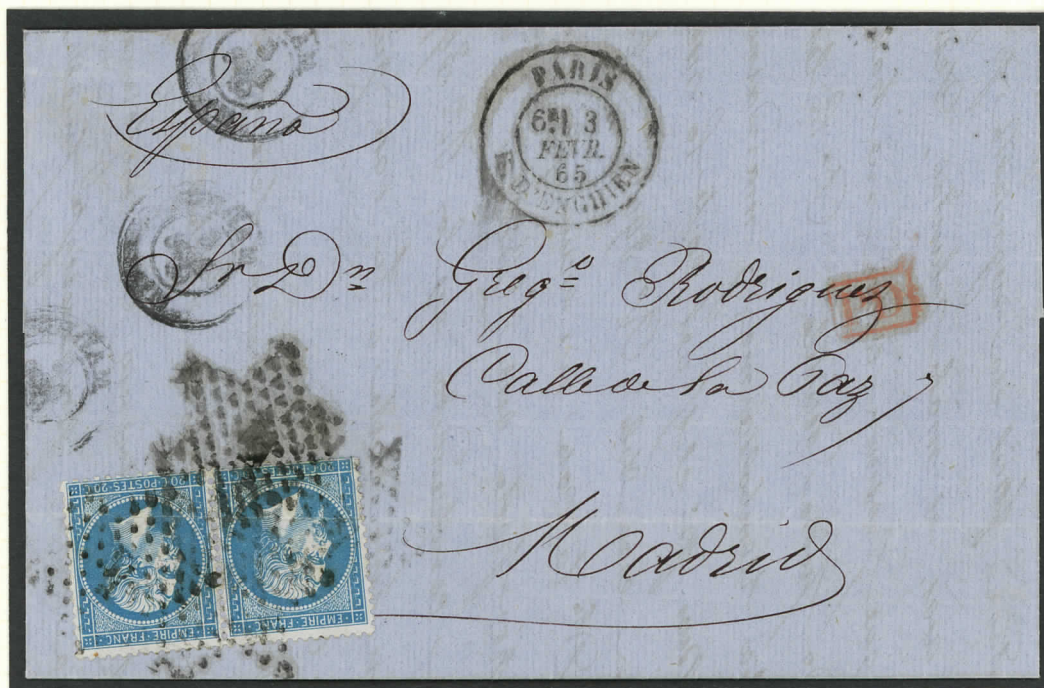 España
PARIS
6E 3
FEVR.
65
R. D'ENGHIEN
Sr Dn Gregº Rodriguez
PD
Calle de la Paz
Madrid
20 C POSTES 20 C
EMPIRE FRANC
20 C POSTES 20 C
EMPIRE FRANC